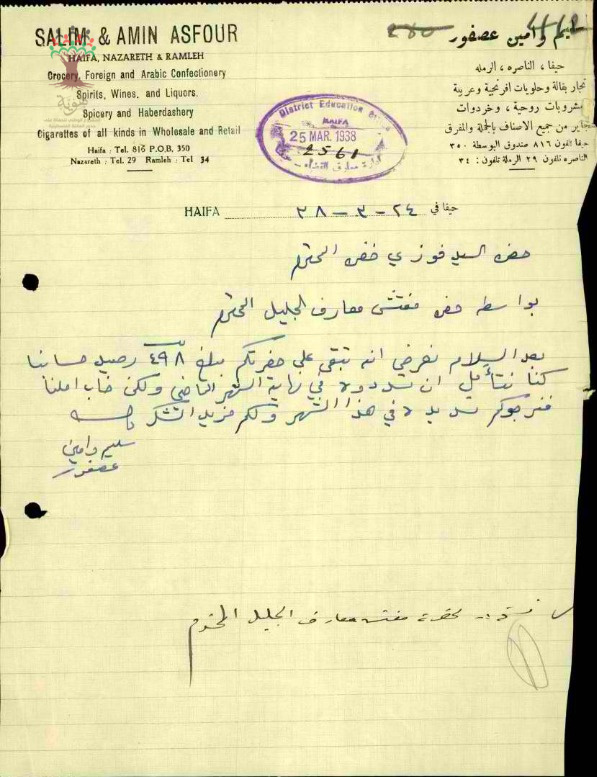 SALIM & AMIN ASFOUR
HAIFA, NAZARETH & RAMLEH
Grocery, Foreign and Arabic Confectionery
Spirits, Wines, and Liquors,
Spicery and Haberdashery
Cigarettes of all kinds in Wholesale and Retail
Haifa : Tel. 816 P.O.B. 350
Nazareth : Tel. 29 Ramleh : Tel 34
سليم وامين عصفور
حيفا ، الناصره ، الرمله
تجار بقالة وحلويات افرنجية وعربية
مشروبات روحية ، وخردوات
سجاير من جميع الاصناف بالجملة والمفرق
حيفا تلفون ٨١٦ صندوق البوسطة ٣٥٠
الناصره تلفون ٢٩ الرملة تلفون : ٣٤
District Education Office
HAIFA
25 MAR. 1938
2561
HAIFA ٢٤ - ٣ - ٣٨ حيفا في
حضرة السيد فوزي خضر المحترم
بواسطة حضرة مفتش معارف الجليل المحترم
بعد السلام نعرض انه تبقى على حضرتكم مبلغ ٤٩٨ رصيد حسابنا
كنا نتأمل ان تسددوه في نهاية الشهر الماضي ولكن خاب املنا
فنرجوكم تسديده في هذا الشهر ولكم مزيد الشكر
سليم وامين
عصفور
لحضرة مفتش معارف الجليل المحترم